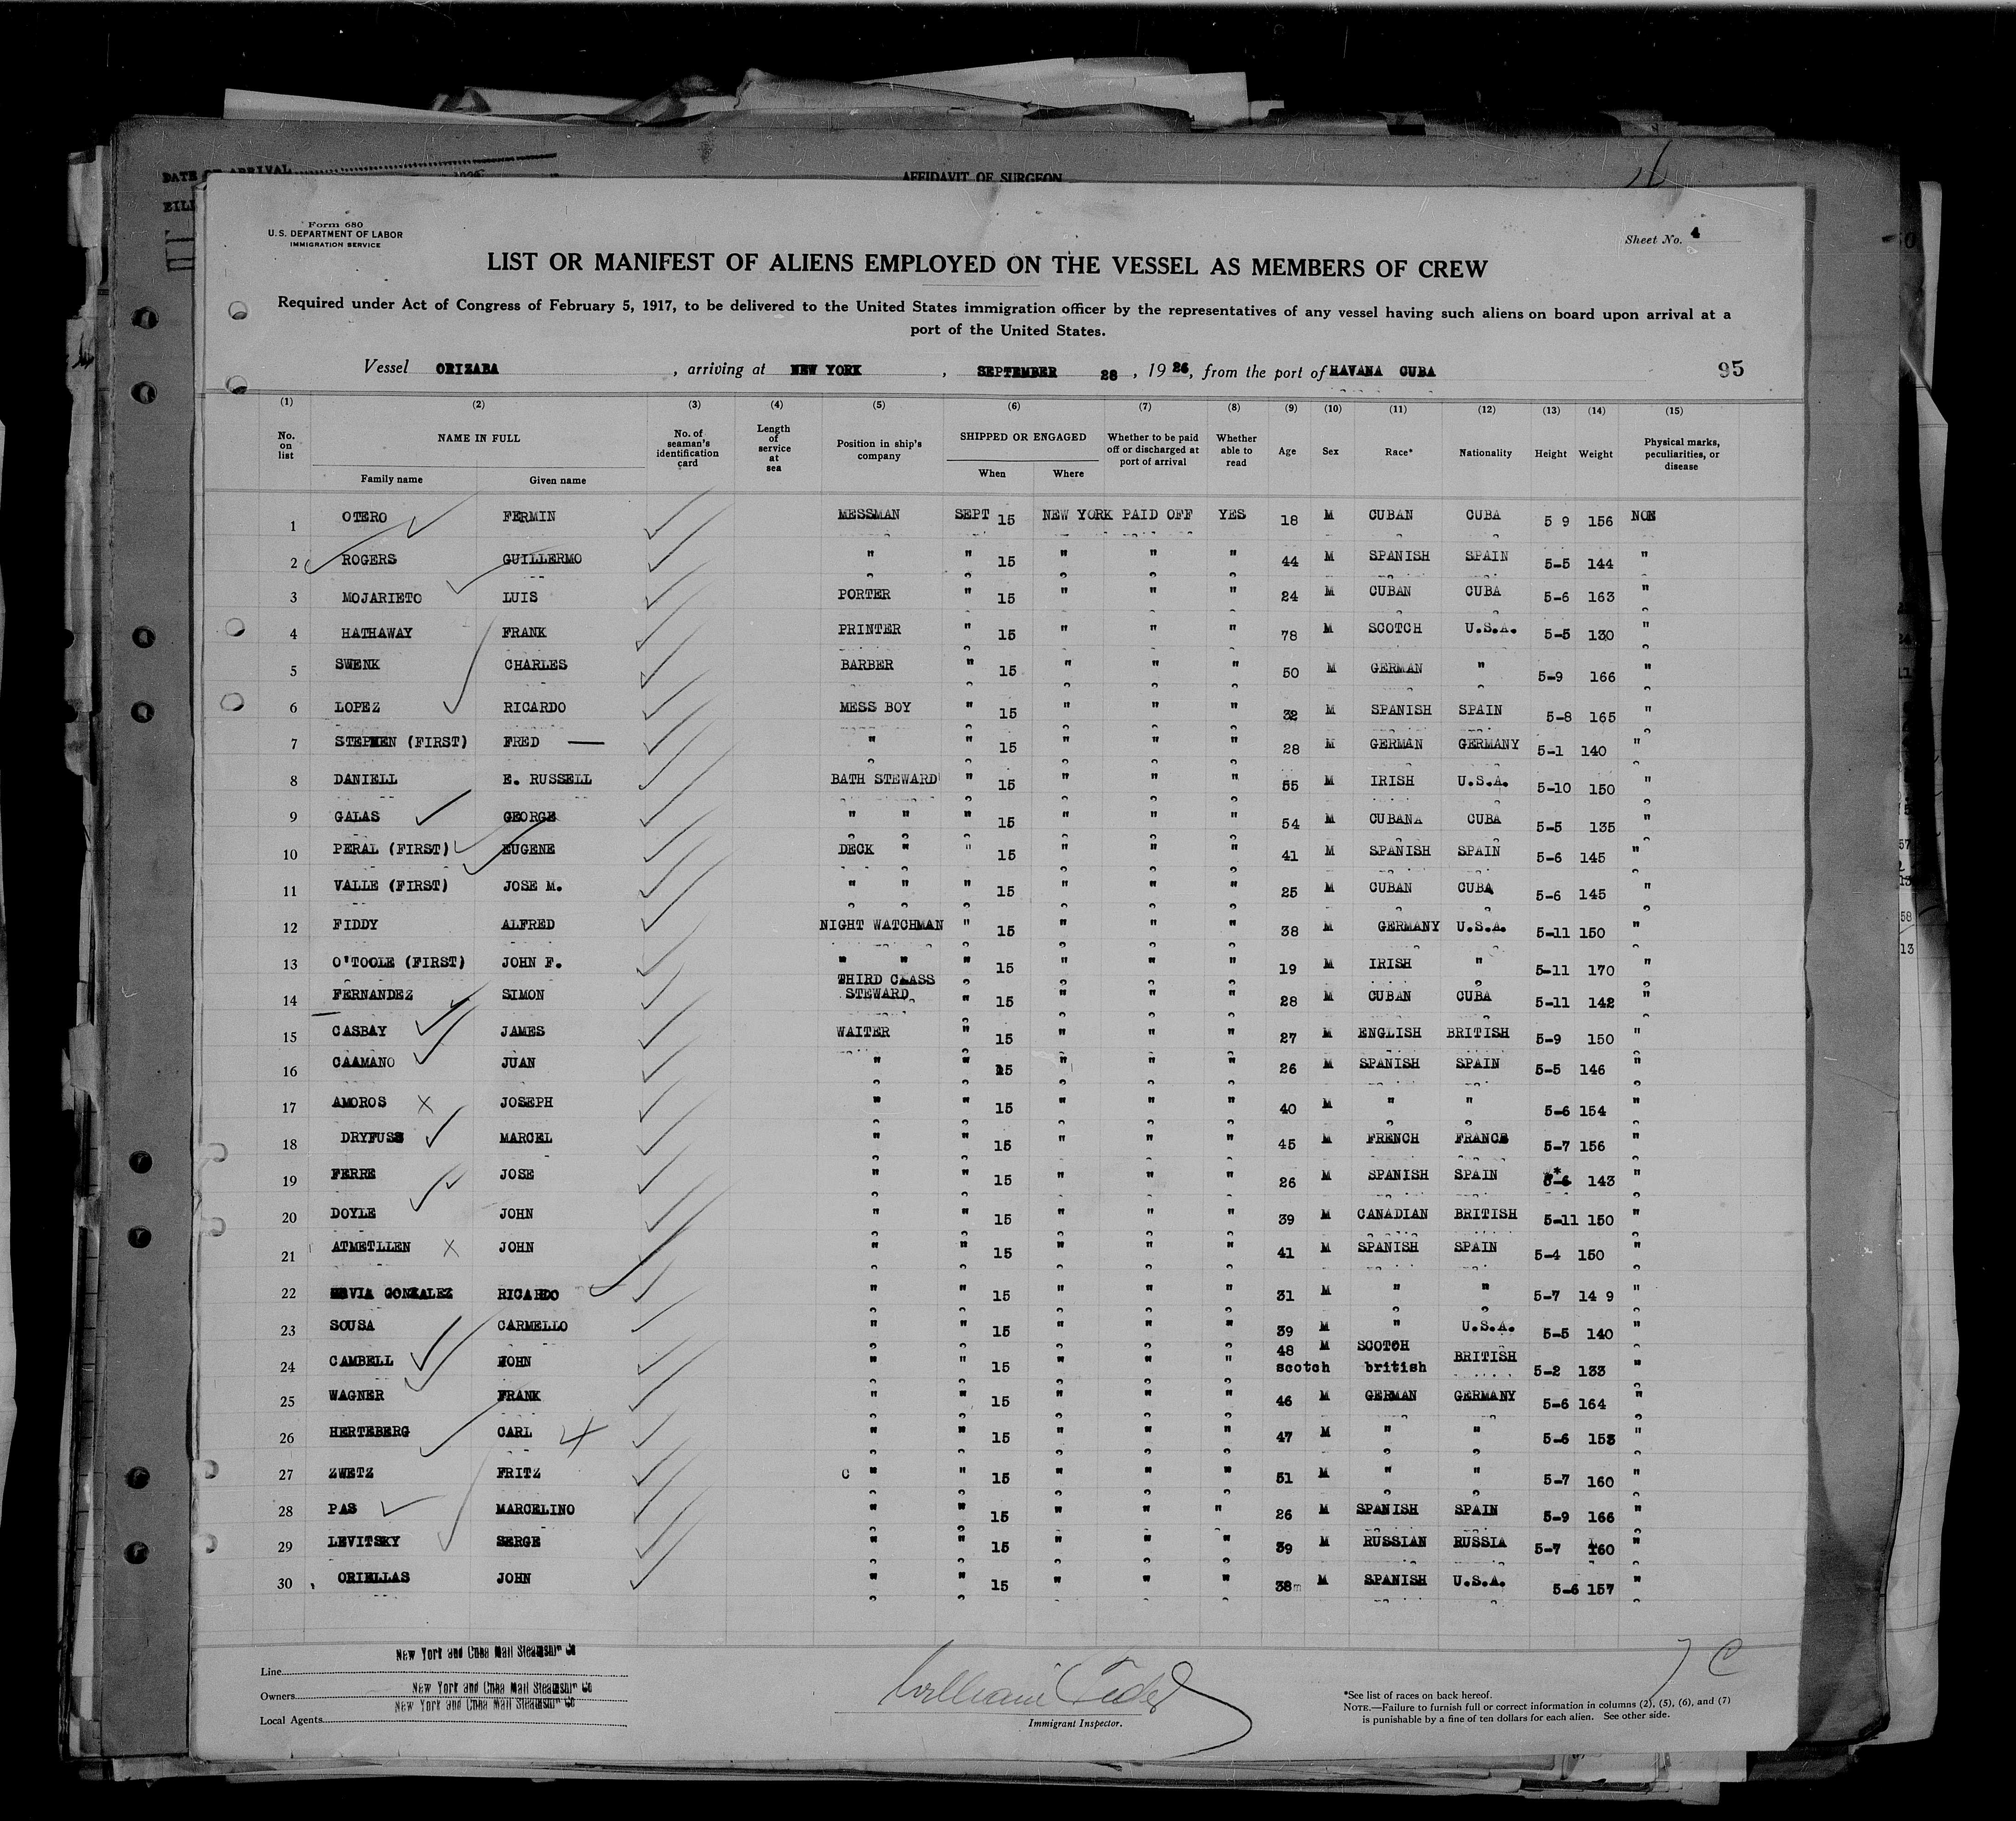 DATE OF ARRIVAL
AFFIDAVIT OF SURGEON
Form 680
U.S. DEPARTMENT OF LABOR
IMMIGRATION SERVICE
Sheet No. 4
LIST OR MANIFEST OF ALIENS EMPLOYED ON THE VESSEL AS MEMBERS OF CREW
Required under Act of Congress of February 5, 1917, to be delivered to the United States immigration officer by the representatives of any vessel having such aliens on board upon arrival at a
port of the United States.
Vessel ORIZABA, arriving at NEW YORK, SEPTEMBER 28, 1926, from the port of HAVANA CUBA 95
(1) (2) (3) (4) (5) (6) (7) (8) (9) (10) (11) (12) (13) (14) (15)
No. on list NAME IN FULL Family name Given name No. of seaman's identification card Length of service at sea Position in ship's company SHIPPED OR ENGAGED When Where Whether to be paid off or discharged at port of arrival Whether able to read Age Sex Race* Nationality Height Weight Physical marks, peculiarities, or disease
1 OTERO FERMIN MESSMAN SEPT 15 NEW YORK PAID OFF YES 18 M CUBAN CUBA 5 9 156 NON
2 ROGERS GUILLERMO " " 15 " " " 44 M SPANISH SPAIN 5-5 144 "
3 MOJARIETO LUIS PORTER " 15 " " " 24 M CUBAN CUBA 5-6 163 "
4 HATHAWAY FRANK PRINTER " 15 " " " 78 M SCOTCH U.S.A. 5-5 130 "
5 SWENK CHARLES BARBER " 15 " " " 50 M GERMAN " 5-9 166 "
6 LOPEZ RICARDO MESS BOY " 15 " " " 32 M SPANISH SPAIN 5-8 165 "
7 STEPHEN (FIRST) FRED " " 15 " " " 28 M GERMAN GERMANY 5-1 140 "
8 DANIELL E. RUSSELL BATH STEWARD " 15 " " " 55 M IRISH U.S.A. 5-10 150 "
9 GALAS GEORGE " " " 15 " " " 54 M CUBANA CUBA 5-5 135 "
10 PERAL (FIRST) EUGENE DECK " " 15 " " " 41 M SPANISH SPAIN 5-6 145 "
11 VALLE (FIRST) JOSE M. " " " 15 " " " 25 M CUBAN CUBA 5-6 145 "
12 FIDDY ALFRED NIGHT WATCHMAN " 15 " " " 38 M GERMANY U.S.A. 5-11 150 "
13 O'TOOLE (FIRST) JOHN F. " " " 15 " " " 19 M IRISH " 5-11 170 "
14 FERNANDEZ SIMON THIRD CLASS STEWARD " 15 " " " 28 M CUBAN CUBA 5-11 142 "
15 CASBAY JAMES WAITER " 15 " " " 27 M ENGLISH BRITISH 5-9 150 "
16 CAAMANO JUAN " " 15 " " " 26 M SPANISH SPAIN 5-5 146 "
17 AMOROS JOSEPH " " 15 " " " 40 M " " 5-6 154 "
18 DRYFUSS MARCEL " " 15 " " " 45 M FRENCH FRANCE 5-7 156 "
19 FERRE JOSE " " 15 " " " 26 M SPANISH SPAIN 5-6 143 "
20 DOYLE JOHN " " 15 " " " 39 M CANADIAN BRITISH 5-11 150 "
21 ATMETLLEN JOHN " " 15 " " " 41 M SPANISH SPAIN 5-4 150 "
22 GONZALEZ RICARDO " " 15 " " " 31 M " " 5-7 14 9 "
23 SOUSA CARMELLO " " 15 " " " 39 M " U.S.A. 5-5 140 "
24 CAMBELL JOHN " " 15 " " " 48 M SCOTCH BRITISH 5-2 133 "
scotch british
25 WAGNER FRANK " " 15 " " " 46 M GERMAN GERMANY 5-6 164 "
26 HERTEBERG CARL " " 15 " " " 47 M " " 5-6 153 "
27 ZWETZ FRITZ C " " 15 " " " 51 M " " 5-7 160 "
28 PAS MARCELINO " " 15 " " " 26 M SPANISH SPAIN 5-9 166 "
29 LEVITSKY SERGE " " 15 " " " 39 M RUSSIAN RUSSIA 5-7 160 "
30 ORIELLAS JOHN " " 15 " " " 38m M SPANISH U.S.A. 5-6 157 "
Line New York and Cuba Mail Steamship Co
Owners New York and Cuba Mail Steamship Co
Local Agents New York and Cuba Mail Steamship Co
William
Immigrant Inspector.
*See list of races on back hereof.
NOTE.—Failure to furnish full or correct information in columns (2), (5), (6), and (7)
is punishable by a fine of ten dollars for each alien. See other side.